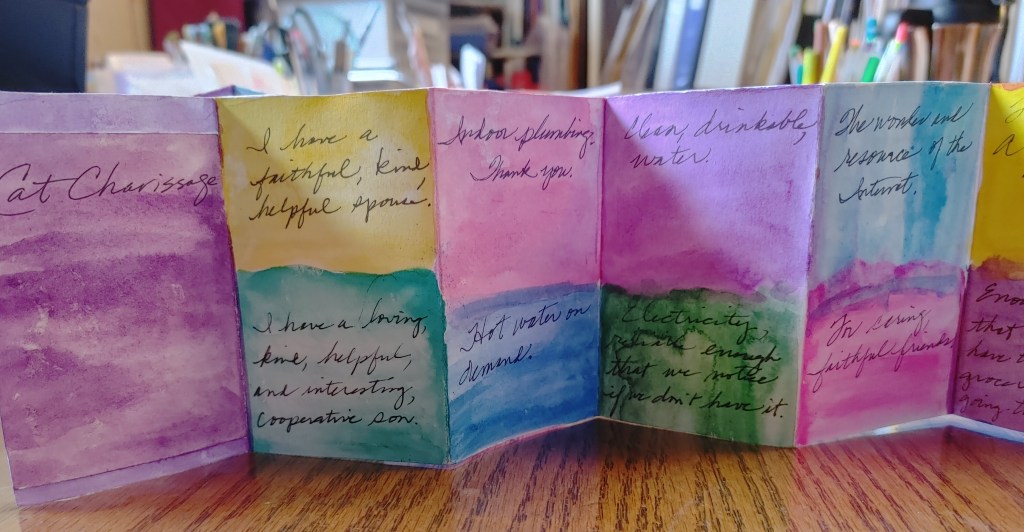 Cat Charissage
I have a
faithful, kind,
helpful spouse.
I have a loving,
kind, helpful,
and interesting,
cooperative son.
Indoor plumbing.
Thank you.
Hot water on
demand.
Clean, drinkable,
water.
Electricity,
enough
that we notice
if we don't have it.
The wonder and
resource of the
Internet.
For caring,
faithful friends
A
that
have
going